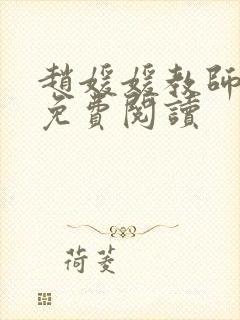 趙媛媛教師
免費閱讀
荷菱